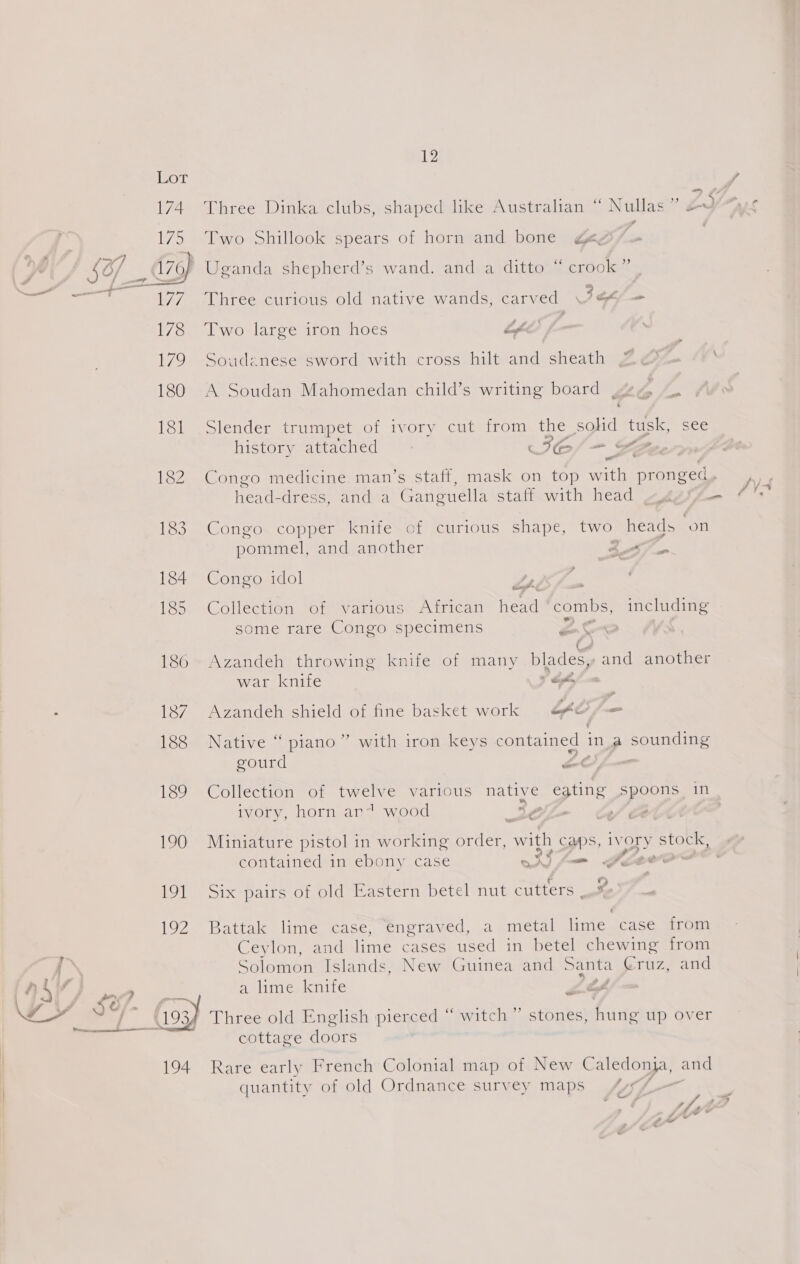 12
Lot
174 Three Dinka clubs, shaped like Australian “ Nullas ”
175 Two Shillook spears of horn and bone
176 Uganda shepherd’s wand. and a ditto “ crook ”
177 Three curious old native wands, carved
178 Two large iron hoes
179 Soudanese sword with cross hilt and sheath
180 A Soudan Mahomedan child’s writing board
181 Slender trumpet of ivory cut from the solid tusk, see
history attached
182 Congo medicine man’s staff, mask on top with pronged
head-dress, and a Ganguella staff with head
183 Congo copper knife of curious shape, two heads on
pommel, and another
184 Congo idol
185 Collection of various African head combs, including
some rare Congo specimens
186 Azandeh throwing knife of many blades, and another
war knife
187 Azandeh shield of fine basket work
188 Native “ piano ” with iron keys contained in a sounding
gourd
189 Collection of twelve various native eating spoons in
ivory, horn and wood
190 Miniature pistol in working order, with caps, ivory stock,
contained in ebony case
191 Six pairs of old Eastern betel nut cutters
192 Battak lime case, engraved, a metal lime case from
Ceylon, and lime cases used in betel chewing from
Solomon Islands, New Guinea and Santa Cruz, and
a lime knife
193 Three old English pierced “ witch ” stones, hung up over
cottage doors
194 Rare early French Colonial map of New Caledonia, and
quantity of old Ordnance survey maps